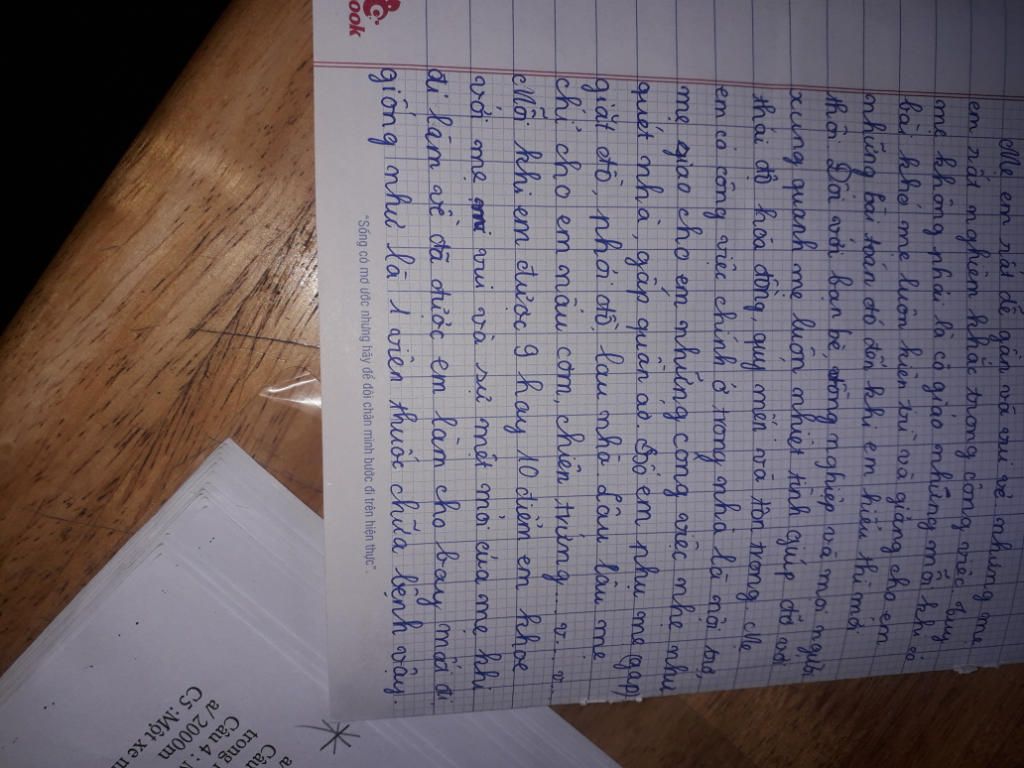 Mẹ em rất dễ gần và vui vẻ nhưng mẹ
em rất nghiêm khắc trong công việc. Tuy
mẹ không phải là cô giáo nhưng mỗi khi có
bài khó mẹ luôn kiên trì và giảng cho em
những bài toán đó đến khi em hiểu thì mới
thôi. Đối với bạn bè đồng nghiệp và mọi người
xung quanh mẹ luôn nhiệt tình giúp đỡ với
thái độ hòa đồng, quý mến và tôn trọng. Mẹ
em có công việc chính ở trong nhà là nội trợ,
mẹ giao cho em những công việc nhẹ như
quét nhà, gấp quần áo. Đố em như mẹ gấp,
giặt đồ, phơi đồ, lau nhà. Lâu lâu mẹ
chỉ cho em nấu cơm, chiên trứng... v... v...
Mỗi khi em được 9 hay 10 điểm em khoe
với mẹ vui và sự mệt mỏi của mẹ khi
đi làm về đã được em làm cho bay mất đi
giống như là 1 viên thuốc chữa bệnh vậy.
"Sống có mơ ước nhưng hãy để đôi chân mình bước đi trên hiện thực".
ook
a/
Câu
trong
Câu 4 :
a/ 2000m
C5 :Một xe